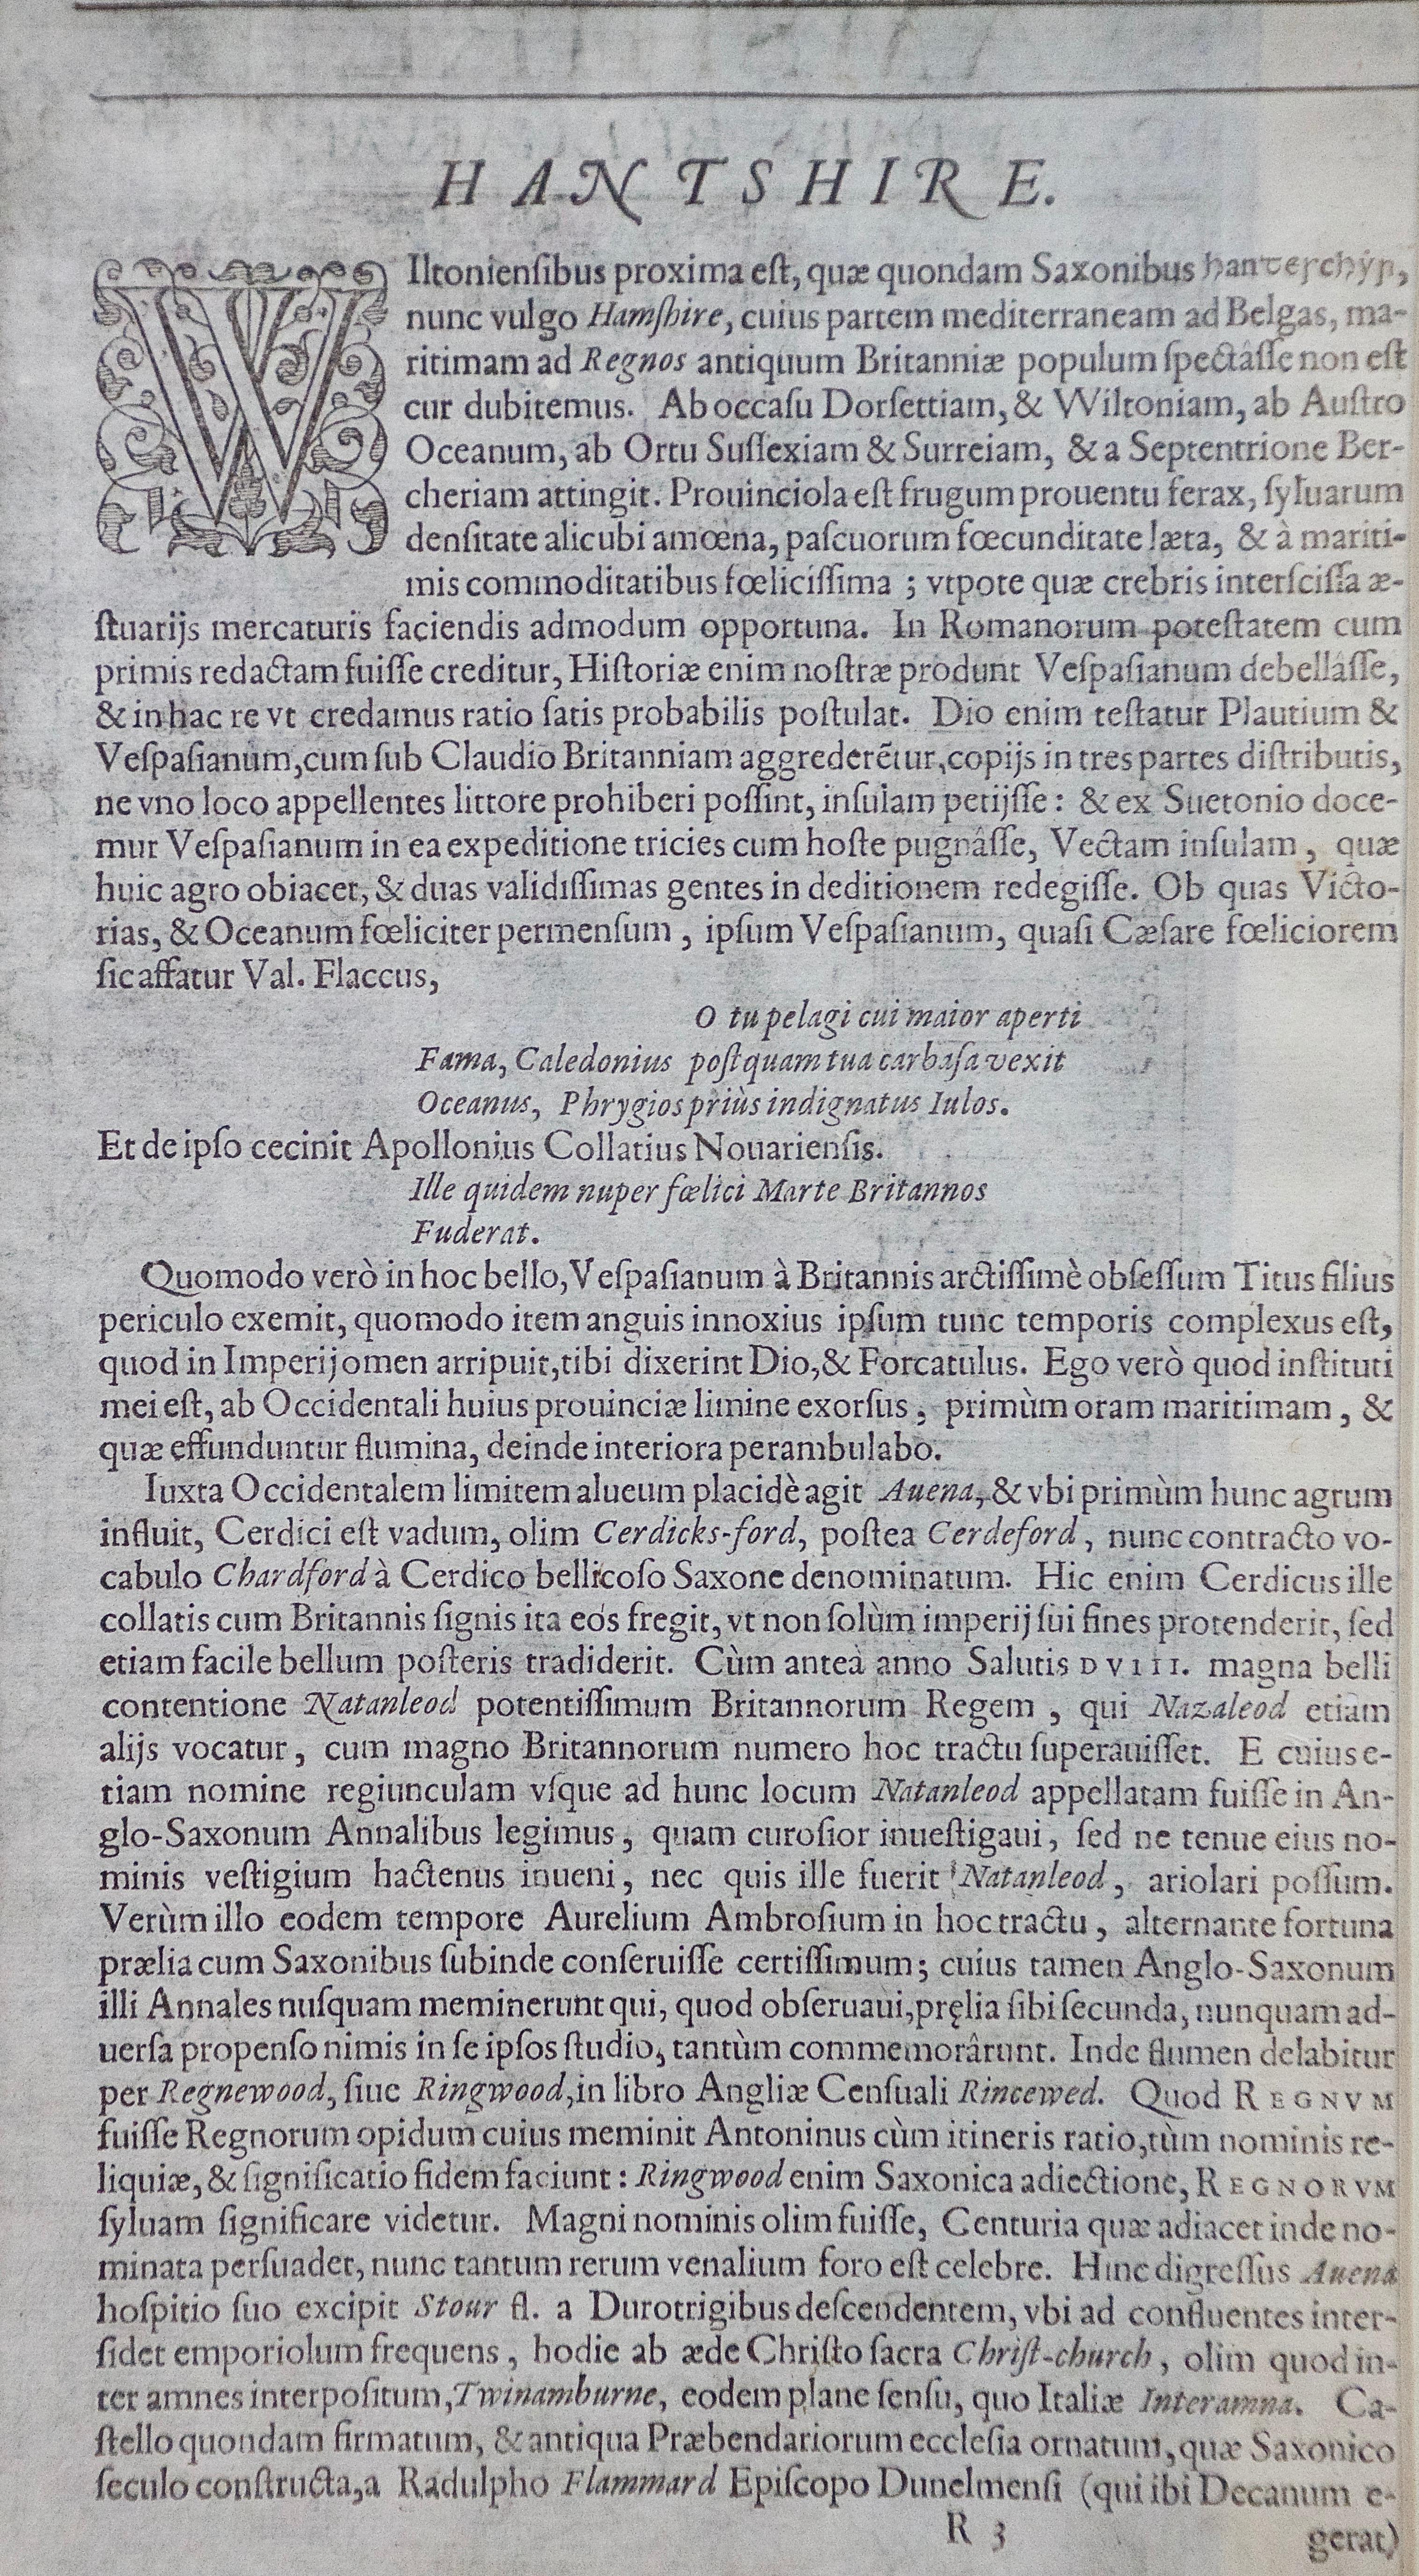 HANTSHIRE.
WIltoniensibus proxima est, quæ quondam Saxonibus
nunc vulgo Hamſhire, cuius partem mediterraneam ad Belgas, ma-
ritimam ad Regnos antiquum Britanniæ populum ſpectâſſe non eſt
cur dubitemus. Ab occaſu Dorſettiam, & Wiltoniam, ab Auſtro
Oceanum, ab Ortu Suſſexiam & Surreiam, & a Septentrione Ber-
cheriam attingit. Prouinciola eſt frugum prouentu ferax, ſyluarum
denſitate alicubi amœna, paſcuorum fœcunditate læta, & à mariti-
mis commoditatibus fœliciſſima ; vtpote quæ crebris interſciſſa æ-
ſtuarijs mercaturis faciendis admodum opportuna. In Romanorum poteſtatem cum
primis redactam fuiſſe creditur, Hiſtoriæ enim noſtræ produnt Veſpaſianum debellâſſe,
& in hac re vt credamus ratio ſatis probabilis poſtulat. Dio enim teſtatur Plautium &
Veſpaſianum, cum ſub Claudio Britanniam aggrederẽtur, copijs in tres partes diſtributis,
ne vno loco appellentes littore prohiberi poſſint, inſulam petijſſe : & ex Suetonio doce-
mur Veſpaſianum in ea expeditione tricies cum hoſte pugnâſſe, Vectam inſulam , quæ
huic agro obiacet, & duas validiſſimas gentes in deditionem redegiſſe. Ob quas Victo-
rias, & Oceanum fœliciter permenſum , ipſum Veſpaſianum, quaſi Cæſare fœliciorem
ſic affatur Val. Flaccus,
O tu pelagi cui maior aperti
Fama, Caledonius poſtquam tua carbaſa vexit
Oceanus, Phrygios priùs indignatus Iulos.
Et de ipſo cecinit Apollonius Collatius Nouarienſis.
Ille quidem nuper fœlici Marte Britannos
Fuderat.
Quomodo verò in hoc bello, Veſpaſianum à Britannis arctiſſimè obſeſſum Titus filius
periculo exemit, quomodo item anguis innoxius ipſum tunc temporis complexus eſt,
quod in Imperij omen arripuit, tibi dixerint Dio, & Forcatulus. Ego verò quod inſtituti
mei eſt, ab Occidentali huius prouinciæ limine exorſus , primùm oram maritimam , &
quæ effunduntur flumina, deinde interiora perambulabo.
Iuxta Occidentalem limitem alueum placidè agit Auena, & vbi primùm hunc agrum
influit, Cerdici eſt vadum, olim Cerdicks-ford, poſtea Cerdeford , nunc contracto vo-
cabulo Chardford à Cerdico bellicoſo Saxone denominatum. Hic enim Cerdicus ille
collatis cum Britannis ſignis ita eos fregit, vt non ſolùm imperij ſui fines protenderit, ſed
etiam facile bellum poſteris tradiderit. Cùm anteà anno Salutis DVIII. magna belli
contentione Natanleod potentiſſimum Britannorum Regem , qui Nazaleod etiam
alijs vocatur , cum magno Britannorum numero hoc tractu ſuperauiſſet. E cuius e-
tiam nomine regiunculam vſque ad hunc locum Natanleod appellatam fuiſſe in An-
glo-Saxonum Annalibus legimus , quam curoſior inueſtigaui , ſed ne tenue eius no-
minis veſtigium hactenus inueni , nec quis ille fuerit Natanleod , ariolari poſſum.
Verùm illo eodem tempore Aurelium Ambroſium in hoc tractu , alternante fortuna
prælia cum Saxonibus ſubinde conſeruiſſe certiſſimum ; cuius tamen Anglo-Saxonum
illi Annales nuſquam meminerunt qui, quod obſeruaui, pręlia ſibi ſecunda, nunquam ad-
uerſa propenſo nimis in ſe ipſos ſtudio, tantùm commemorârunt. Inde flumen delabitur
per Regnewood, ſiue Ringwood, in libro Angliæ Cenſuali Rincewed. Quod REGNVM
fuiſſe Regnorum opidum cuius meminit Antoninus cùm itineris ratio, tùm nominis re-
liquiæ, & ſignificatio fidem faciunt : Ringwood enim Saxonica adiectione, REGNORVM
ſyluam ſignificare videtur. Magni nominis olim fuiſſe, Centuria quæ adiacet inde no-
minata perſuadet, nunc tantum rerum venalium foro eſt celebre. Hinc digreſſus Auena
hoſpitio ſuo excipit Stour fl. a Durotrigibus deſcendentem, vbi ad confluentes inter-
ſidet emporiolum frequens , hodie ab æde Chriſto ſacra Chriſt-church , olim quod in-
ter amnes interpoſitum, Twinamburne, eodem plane ſenſu, quo Italiæ Interamna. Ca-
ſtello quondam firmatum, & antiqua Præbendariorum eccleſia ornatum, quæ Saxonico
ſeculo conſtructa, a Radulpho Flammard Epiſcopo Dunelmenſi (qui ibi Decanum e-
R 3
gerat)